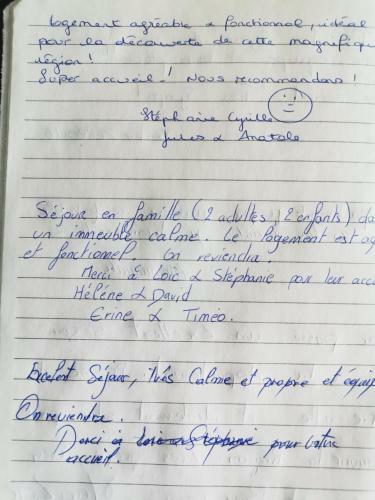 Logement agréable & fonctionnel, idéal
pour la découverte de cette magnifique
région !
Super accueil ! Nous recommandons !
Stéphanie Cyrille
Jules & Anatole
Séjour en famille (2 adultes, 2 enfants) da
un immeuble calme. Le logement est ag
et fonctionel. On reviendra.
Merci à Loïc & Stéphanie pour leur accu
Hélène & David
Erine & Timeo.
Excelent Séjour, très Calme et propre et équip
On reviendra.
Merci à Loic et Stéphanie pour votre
accueil.